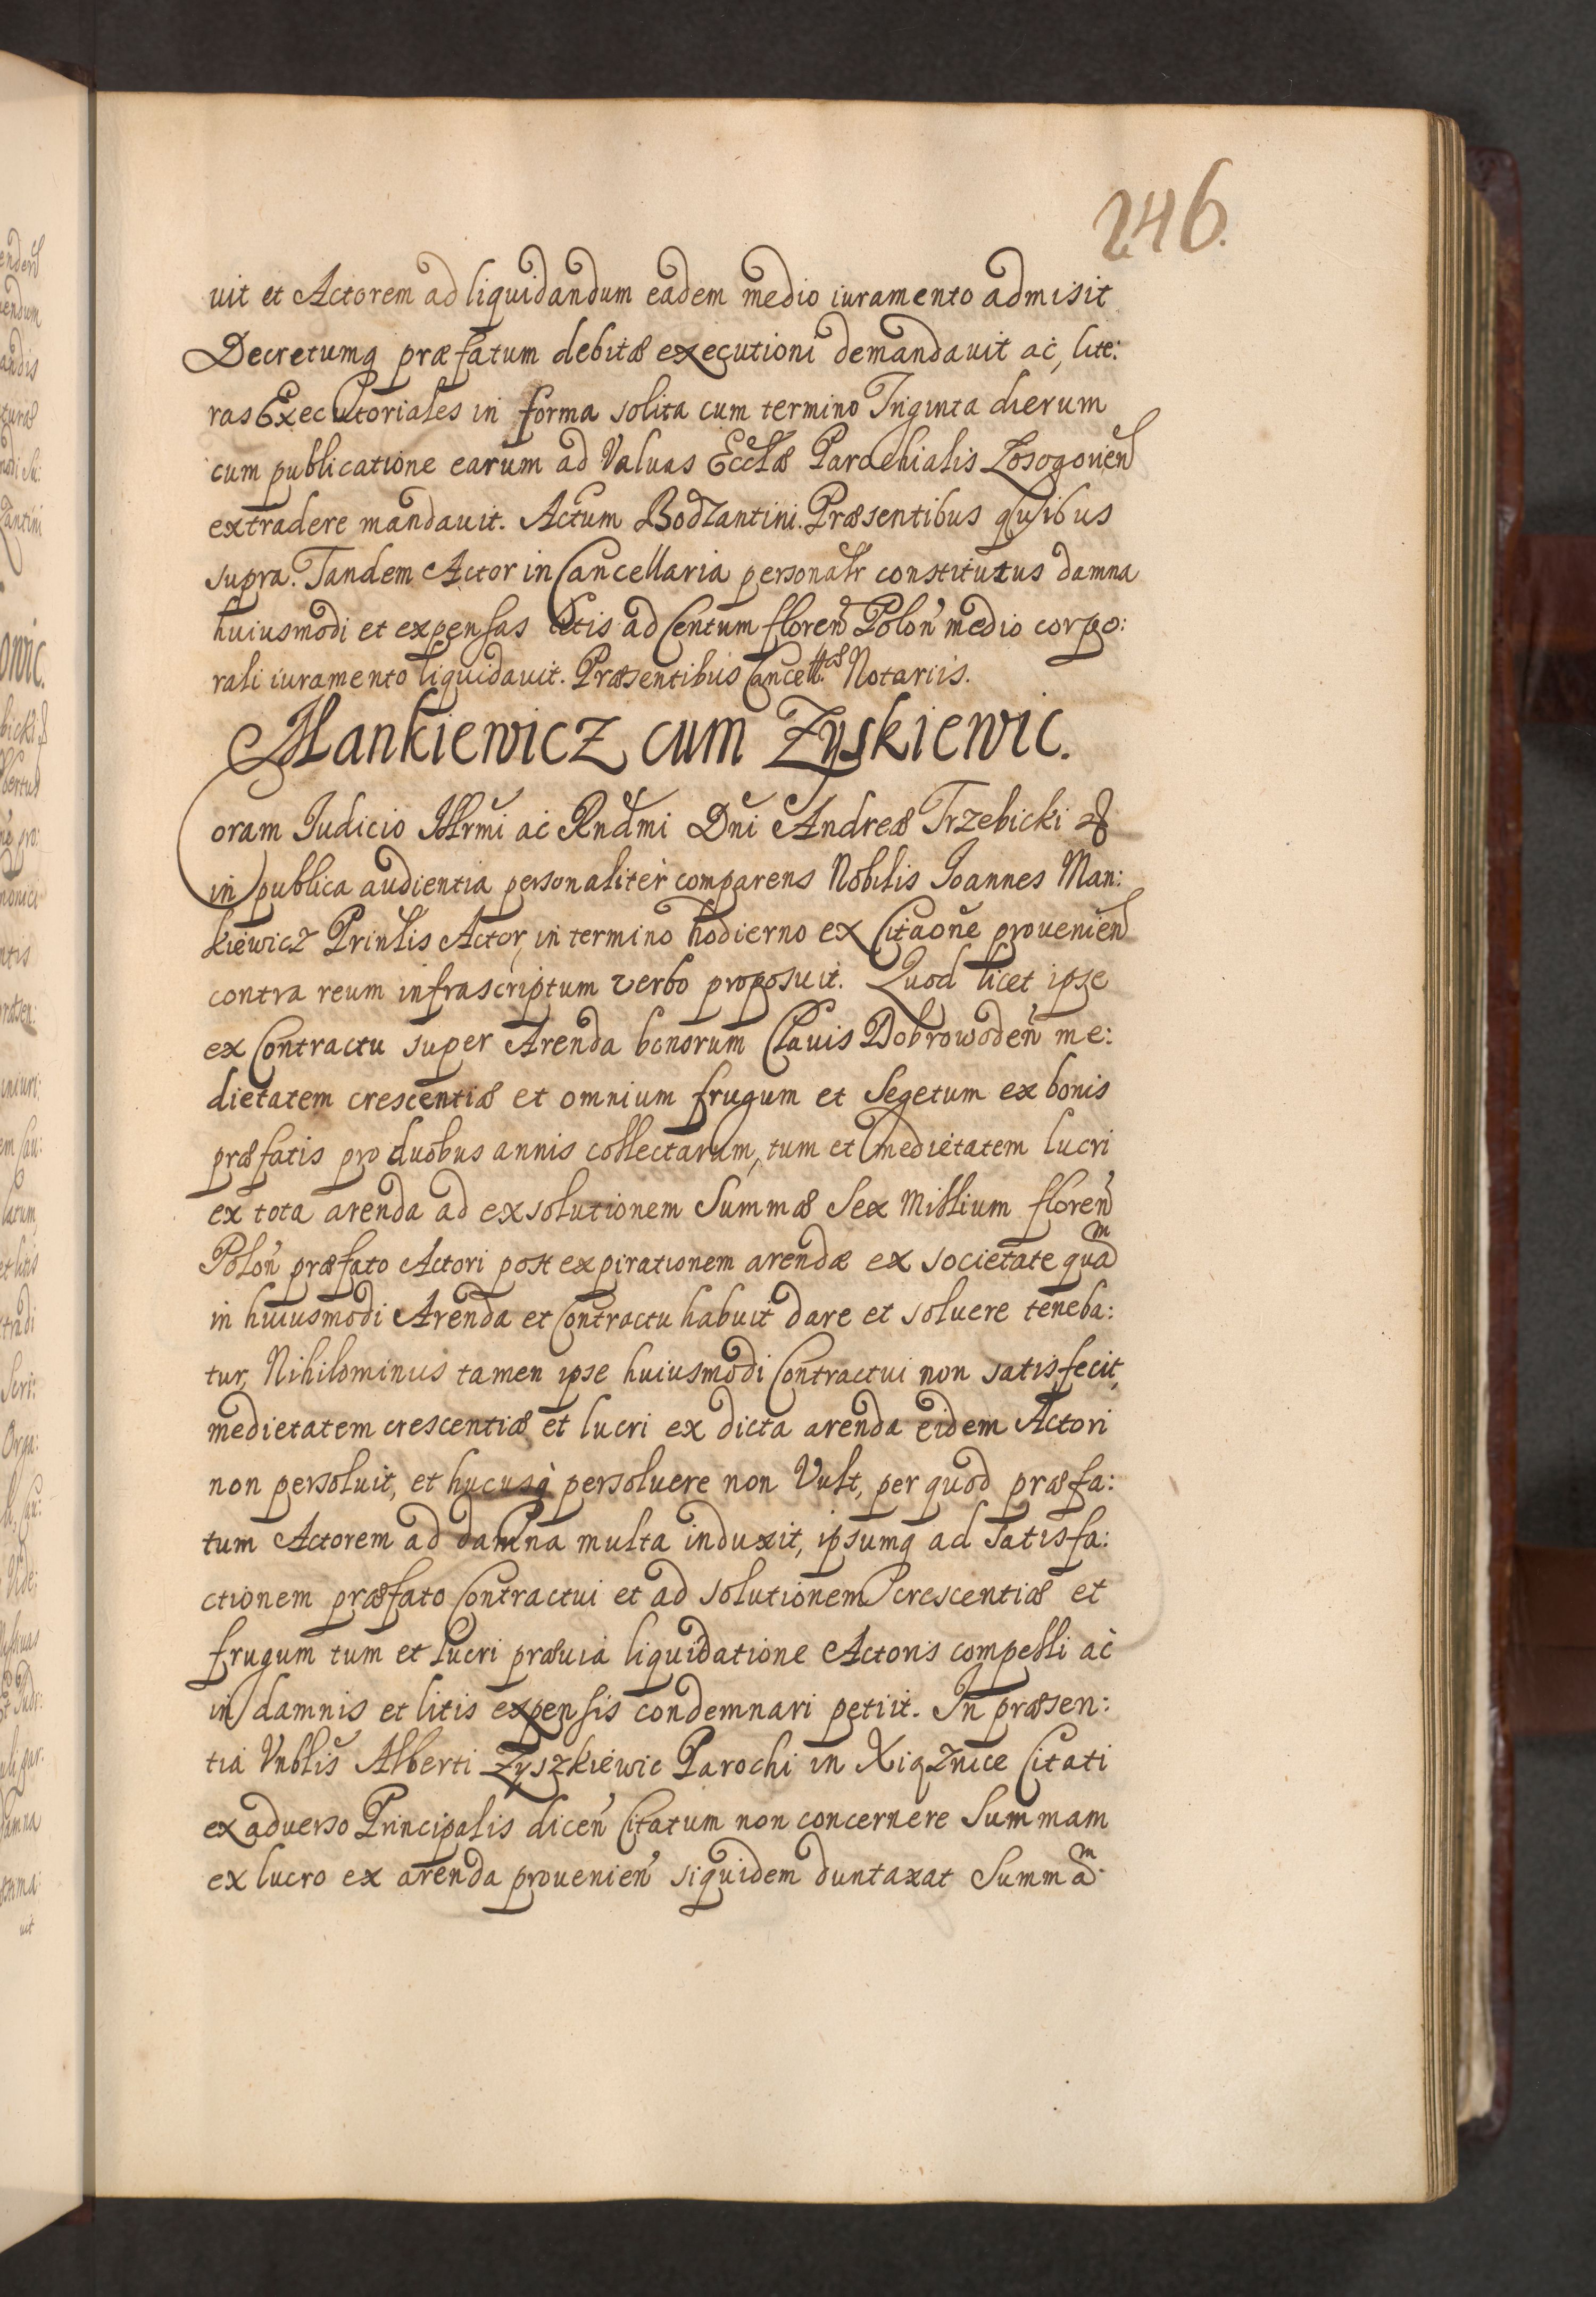 246.
uit et Actorem ad liquidandum eadem medio iuramento admisit
Decretumq præfatum debitæ executioni demandauit ac, lite:
ras Executoriales in forma solita cum termino Triginta dierum
cum publicatione earum ad Valuas Ecclæ Parochialis Zosogouień
extradere mandauit. Actum Bodzantini. Præsentibus quibus
supra. Tandem Actor in Cancellaria personalr constitutus damna
huiusmodi et expensas litis ad Centum floreń Poloń medio corpo:
rali iuramento liquidauit. Præsentibus Cancell.æ Notariis.
Mankiewicz cum Zyskiewic.
Coram Iudicio Illrmi ac Rndmi Dni Andreæ Trzebicki &
in publica audientia personaliter comparens Nobilis Ioannes Man:
kiewicz Prinlis Actor, in termino hodierno ex Citaone prouenień
contra reum infrascriptum verbo proposuit. Quod licet ipse
ex Contractu super Arenda bonorum Clauis Dobrowodeń me:
dietatem crescentiæ et omnium frugum et Segetum ex bonis
præfatis pro duobus annis collectarum, tum et medietatem lucri
ex tota arenda ad exsolutionem Summæ Sex Millium floreń
Poloń præfato Actori post expirationem arendæ ex societate quam
in huiusmodi Arenda et Contractu habuit dare et soluere teneba:
tur, Nihilominus tamen ipse huiusmodi Contractui non satisfecit,
medietatem crescentiæ et lucri ex dicta arenda eidem Actori
non persoluit, et hucusq persoluere non Vult, per quod præfa:
tum Actorem ad damna multa induxit, ipsumq ad Satisfa:
ctionem præfato Contractui et ad solutionem crescentiæ et
frugum tum et lucri præuia liquidatione Actoris compelli ac
in damnis et litis expensis condemnari petiit. In præsen:
tia Vnblis Alberti Zyszkiewic Parochi in Xiąznice Citati
ex aduerso Principalis diceń Citatum non concernere Summam
ex lucro ex arenda prouenień siquidem duntaxat Summam